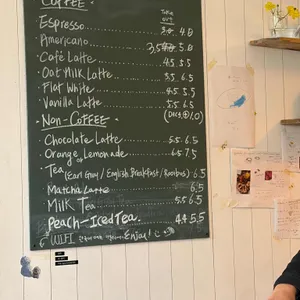 COFFEE.
TAKE OUT
Espresso 3.- 4.0
Americano 3.5 5.0
Café Latte 4.5 5.5
Oat Milk Latte 5.5 6.5
Flat White 4.5 5.5
Vanilla Latte 5.5 6.5
NON-COFFEE.
Chocolate Latte 5.5 6.5
Orange Lemonade 6.5 7.5
Tea (Earl Gray / English Breakfast / Rooibos) 6.5
Matcha Latte 6.5
Milk Tea 5.5 6.5
Peach-Iced Tea. 4.5 5.5
WIFI Enjoy!